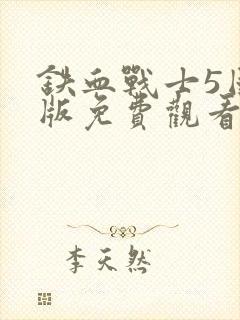 鉄血戰士5
版免費觀看
李天然